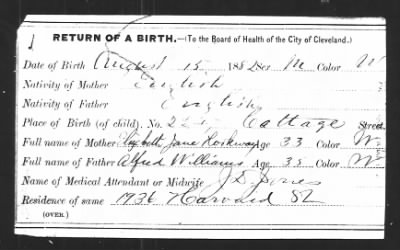 RETURN OF A BIRTH.—(To the Board of Health of the City of Cleveland.)
Date of Birth August 15 188 Sex M Color W
Nativity of Mother English
Nativity of Father English
Place of Birth (of child). No. 22 Cottage Street.
Full name of Mother Elizabeth Jane Age 33 Color W
Full name of Father Alfred Williams Age 35 Color W
Name of Medical Attendant or Midwife J. D. Jones
Residence of same 1936 Harvard St
(OVER.)